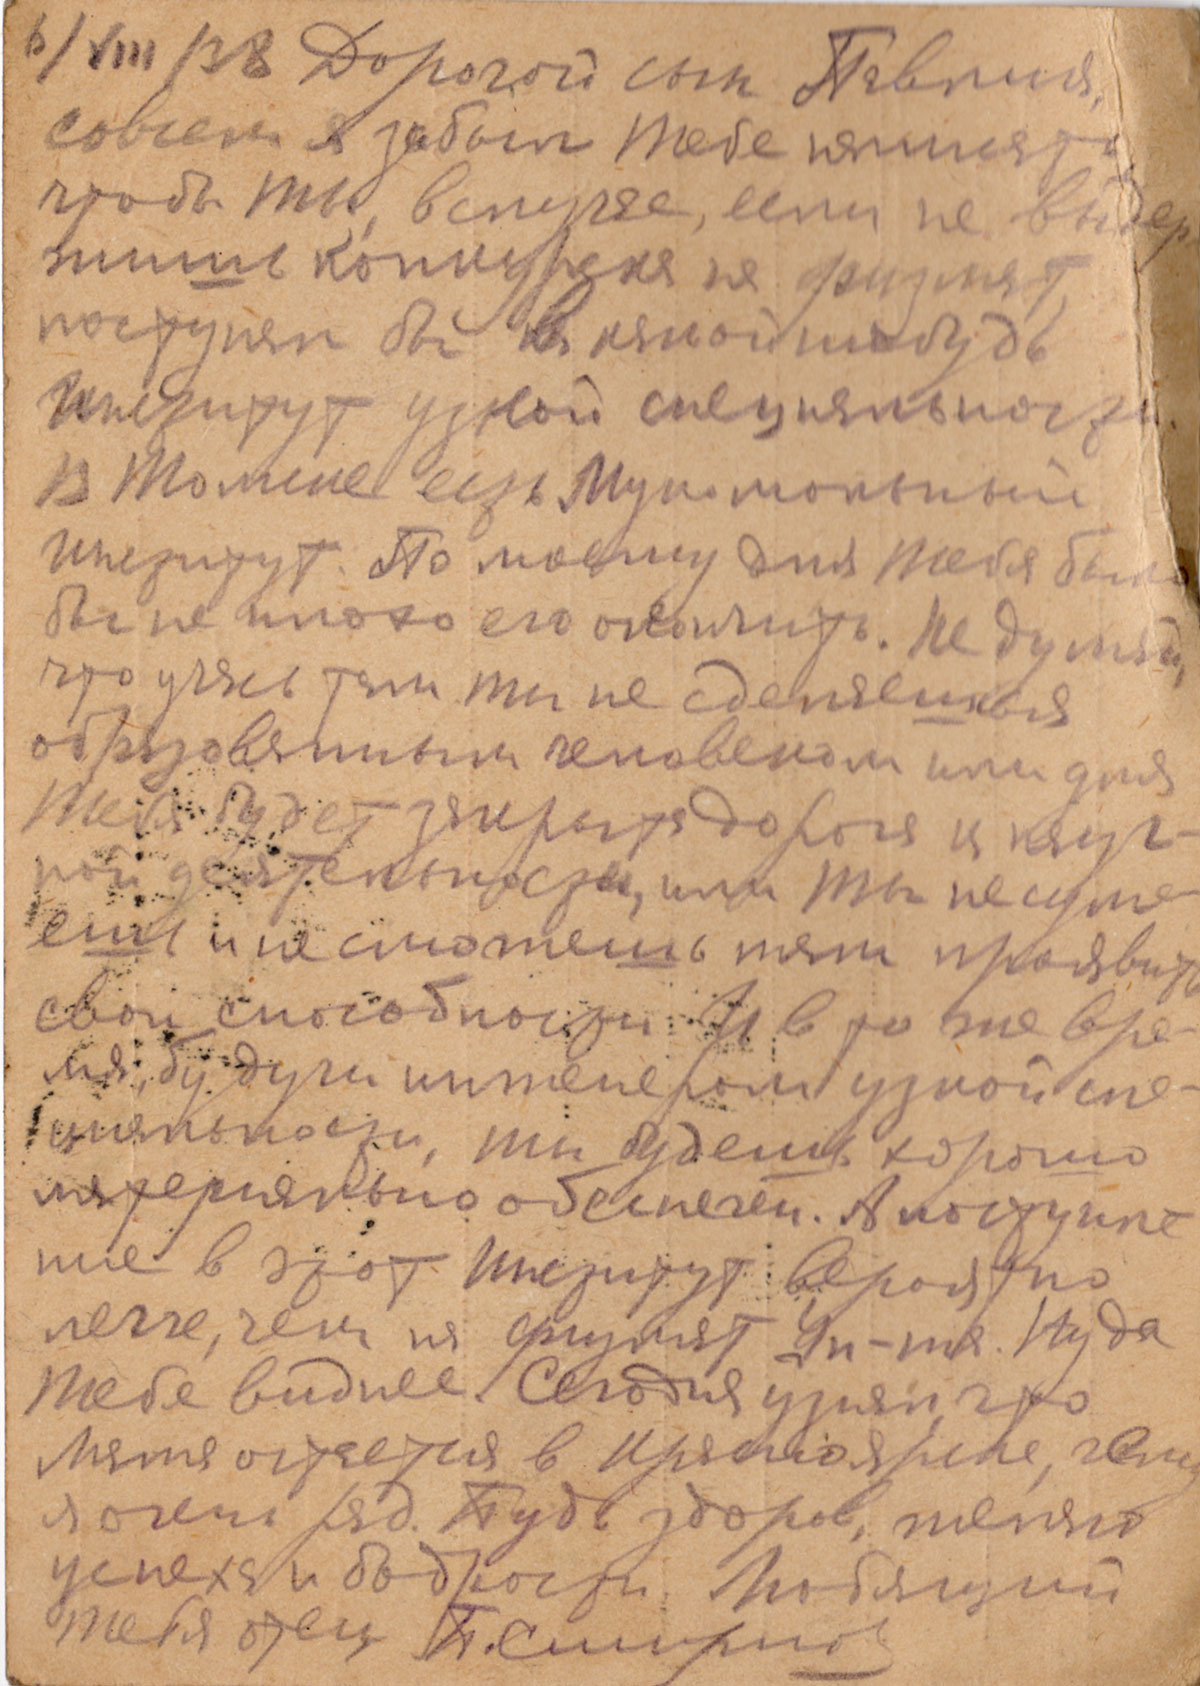 6/VIII/38 Дорогой сын Павлик,
совсем я забыл тебе написать,
чтобы ты, в случае, если не выдер
жишь конкурса на физмат,
поступал бы в какой нибудь
Институт узкой специальности.
В Томске есть Мукомольный
Институт. По моему для тебя было
бы не плохо его окончить. Не думай,
что учась там ты не сделаешься
образованным человеком или для
тебя будет закрыта дорога к науч-
ной деятельности, или ты не суме-
ешь и не сможешь там проявить
свои способности. И в то же вре-
мя, будучи инженером узкой спе-
циальности, ты будешь хорошо
материально обеспечен. А поступле
ние в этот Институт вероятно
легче, чем на физмат Ун-та. Ну да
тебе виднее. Сегодня узнал, что
Мама остается в Красноярске, чему
я очень рад. Будь здоров, желаю
успеха и бодрости. Любящий
тебя отец П. Смирнов